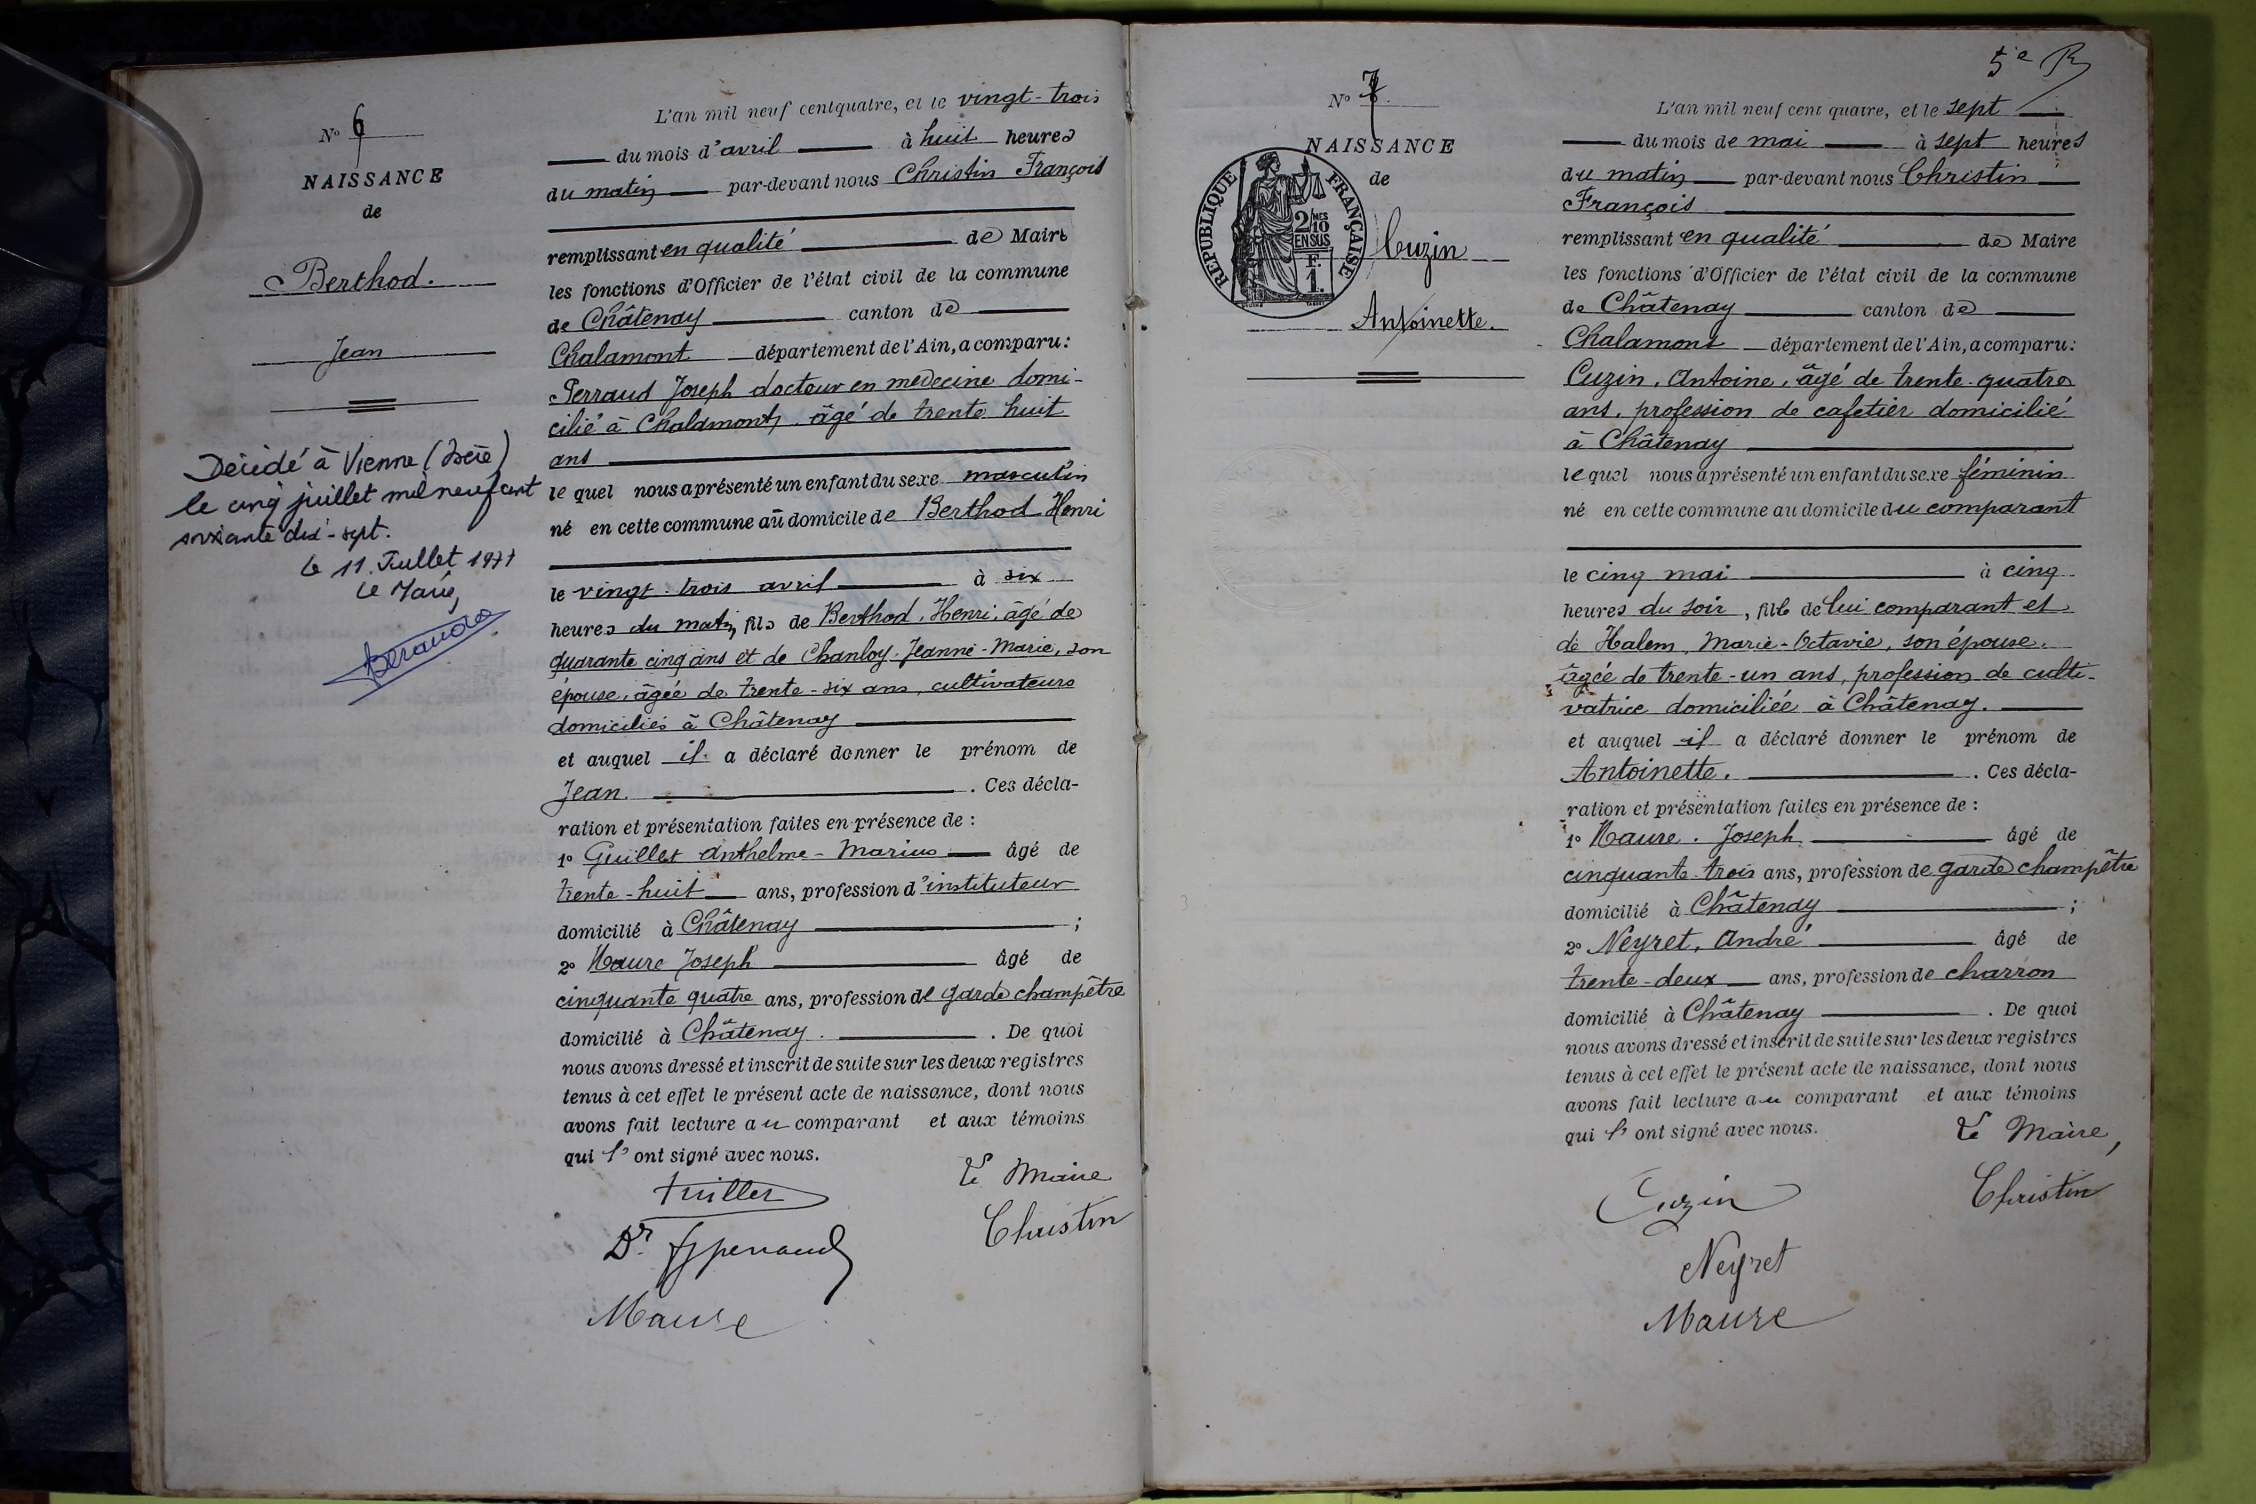 N° 6
NAISSANCE
de
Berthod.
Jean
Décédé à Vienne (Isère)
le cinq juillet mil neuf cent
soixante dix-sept.
Le 11 Juillet 1977
Le Maire,
L'an mil neuf cent quatre, et le vingt-trois
du mois d'avril à huit heures
du matin par-devant nous Christin François
remplissant en qualité de Maire
les fonctions d'Officier de l'état civil de la commune
de Châtenay canton de
Chalamont département de l'Ain, a comparu:
Perraud Joseph docteur en medecine domi-
cilié à Chalamont, âgé de trente huit
ans
le quel nous a présenté un enfant du sexe masculin
né en cette commune au domicile de Berthod Henri
le vingt-trois avril à six
heures du matin, fils de Berthod, Henri, âgé de
quarante cinq ans et de Chanloy, Jeanne-Marie, son
épouse, âgée de trente-six ans, cultivateurs
domiciliés à Châtenay
et auquel il a déclaré donner le prénom de
Jean. . Ces décla-
ration et présentation faites en présence de :
1° Guillet Anthelme-Marius âgé de
trente-huit ans, profession d'instituteur
domicilié à Châtenay ;
2° Maure Joseph âgé de
cinquante quatre ans, profession de garde champêtre
domicilié à Châtenay . De quoi
nous avons dressé et inscrit de suite sur les deux registres
tenus à cet effet le présent acte de naissance, dont nous
avons fait lecture au comparant et aux témoins
qui l' ont signé avec nous.
Le Maire
Guillet
Christin
Dr Perraud
Maure
5e
N° 7
NAISSANCE
de
REPUBLIQUE FRANÇAISE
2/10 MES
EN SUS
F.
1.
Cuzin
Antoinette.
L'an mil neuf cent quatre, et le sept
du mois de mai à sept heures
du matin par-devant nous Christin
François
remplissant en qualité de Maire
les fonctions d'Officier de l'état civil de la commune
de Châtenay canton de
Chalamont département de l'Ain, a comparu:
Cuzin, Antoine, âgé de trente-quatre
ans, profession de cafetier domicilié
à Châtenay
le quel nous a présenté un enfant du sexe féminin
né en cette commune au domicile du comparant
le cinq mai à cinq
heures du soir, fille de lui comparant et
de Halem, Marie-Octavie, son épouse,
âgée de trente-un ans, profession de culti-
vatrice domiciliée à Châtenay.
et auquel il a déclaré donner le prénom de
Antoinette. . Ces décla-
ration et présentation faites en présence de :
1° Maure. Joseph âgé de
cinquante-trois ans, profession de garde champêtre
domicilié à Châtenay ;
2° Neyret, André âgé de
trente-deux ans, profession de charron
domicilié à Châtenay . De quoi
nous avons dressé et inscrit de suite sur les deux registres
tenus à cet effet le présent acte de naissance, dont nous
avons fait lecture au comparant et aux témoins
qui l' ont signé avec nous.
Le Maire,
Cuzin
Christin
Neyret
Maure